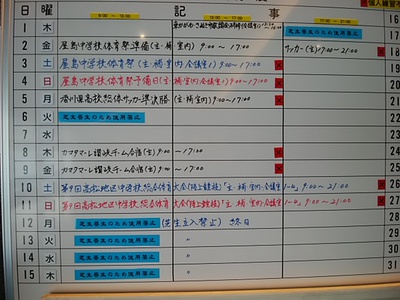 日 曜 記 事
16
1 木
芝生養生のため使用禁止
17
2 金 屋島中学校体育祭準備(主・補・室内) 9:00 ~ 17:00 サッカー(主)17:00~21:00
18
3 土 屋島中学校体育祭(主・補・室内・会議室1) 9:00~17:00
19
4 日 屋島中学校体育祭予備日(主・補・室内・会議室1) 9:00~17:00
20
5 月 香川県高校総体サッカー準決勝(主・補・室内) 9:00~17:00
21
6 火 芝生養生のため使用禁止
22
7 水
23
8 木 カマタマーレ讃岐チーム合宿(主) 9:00 ~ 17:00
24
9 金 カマタマーレ讃岐チーム合宿(主) 9:00 ~ 17:00
25
10 土 大会(陸上競技)「主・補・室内・会議室1~4」 9:00 ~ 21:00
26
11 日 大会(陸上競技)「主・補・室内・会議室1~4」 9:00 ~ 21:00
27
12 月 芝生養生のため使用禁止 (芝生立入禁止) 終日
28
13 火 芝生養生のため使用禁止 〃
29
14 水 芝生養生のため使用禁止 〃
30
15 木 芝生養生のため使用禁止 〃
31